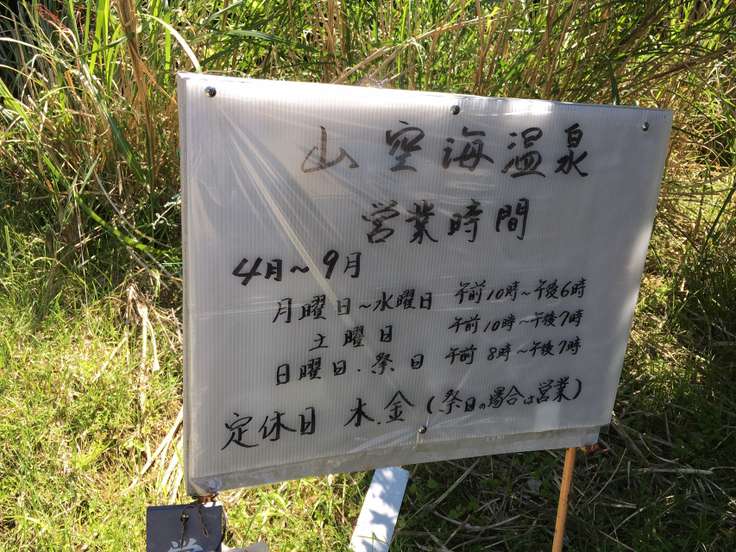 山空海温泉
営業時間
4月～9月
月曜日～水曜日 午前10時～午後6時
土曜日 午前10時～午後7時
日曜日.祭日 午前8時～午後7時
定休日 木.金(祭日の場合は営業)